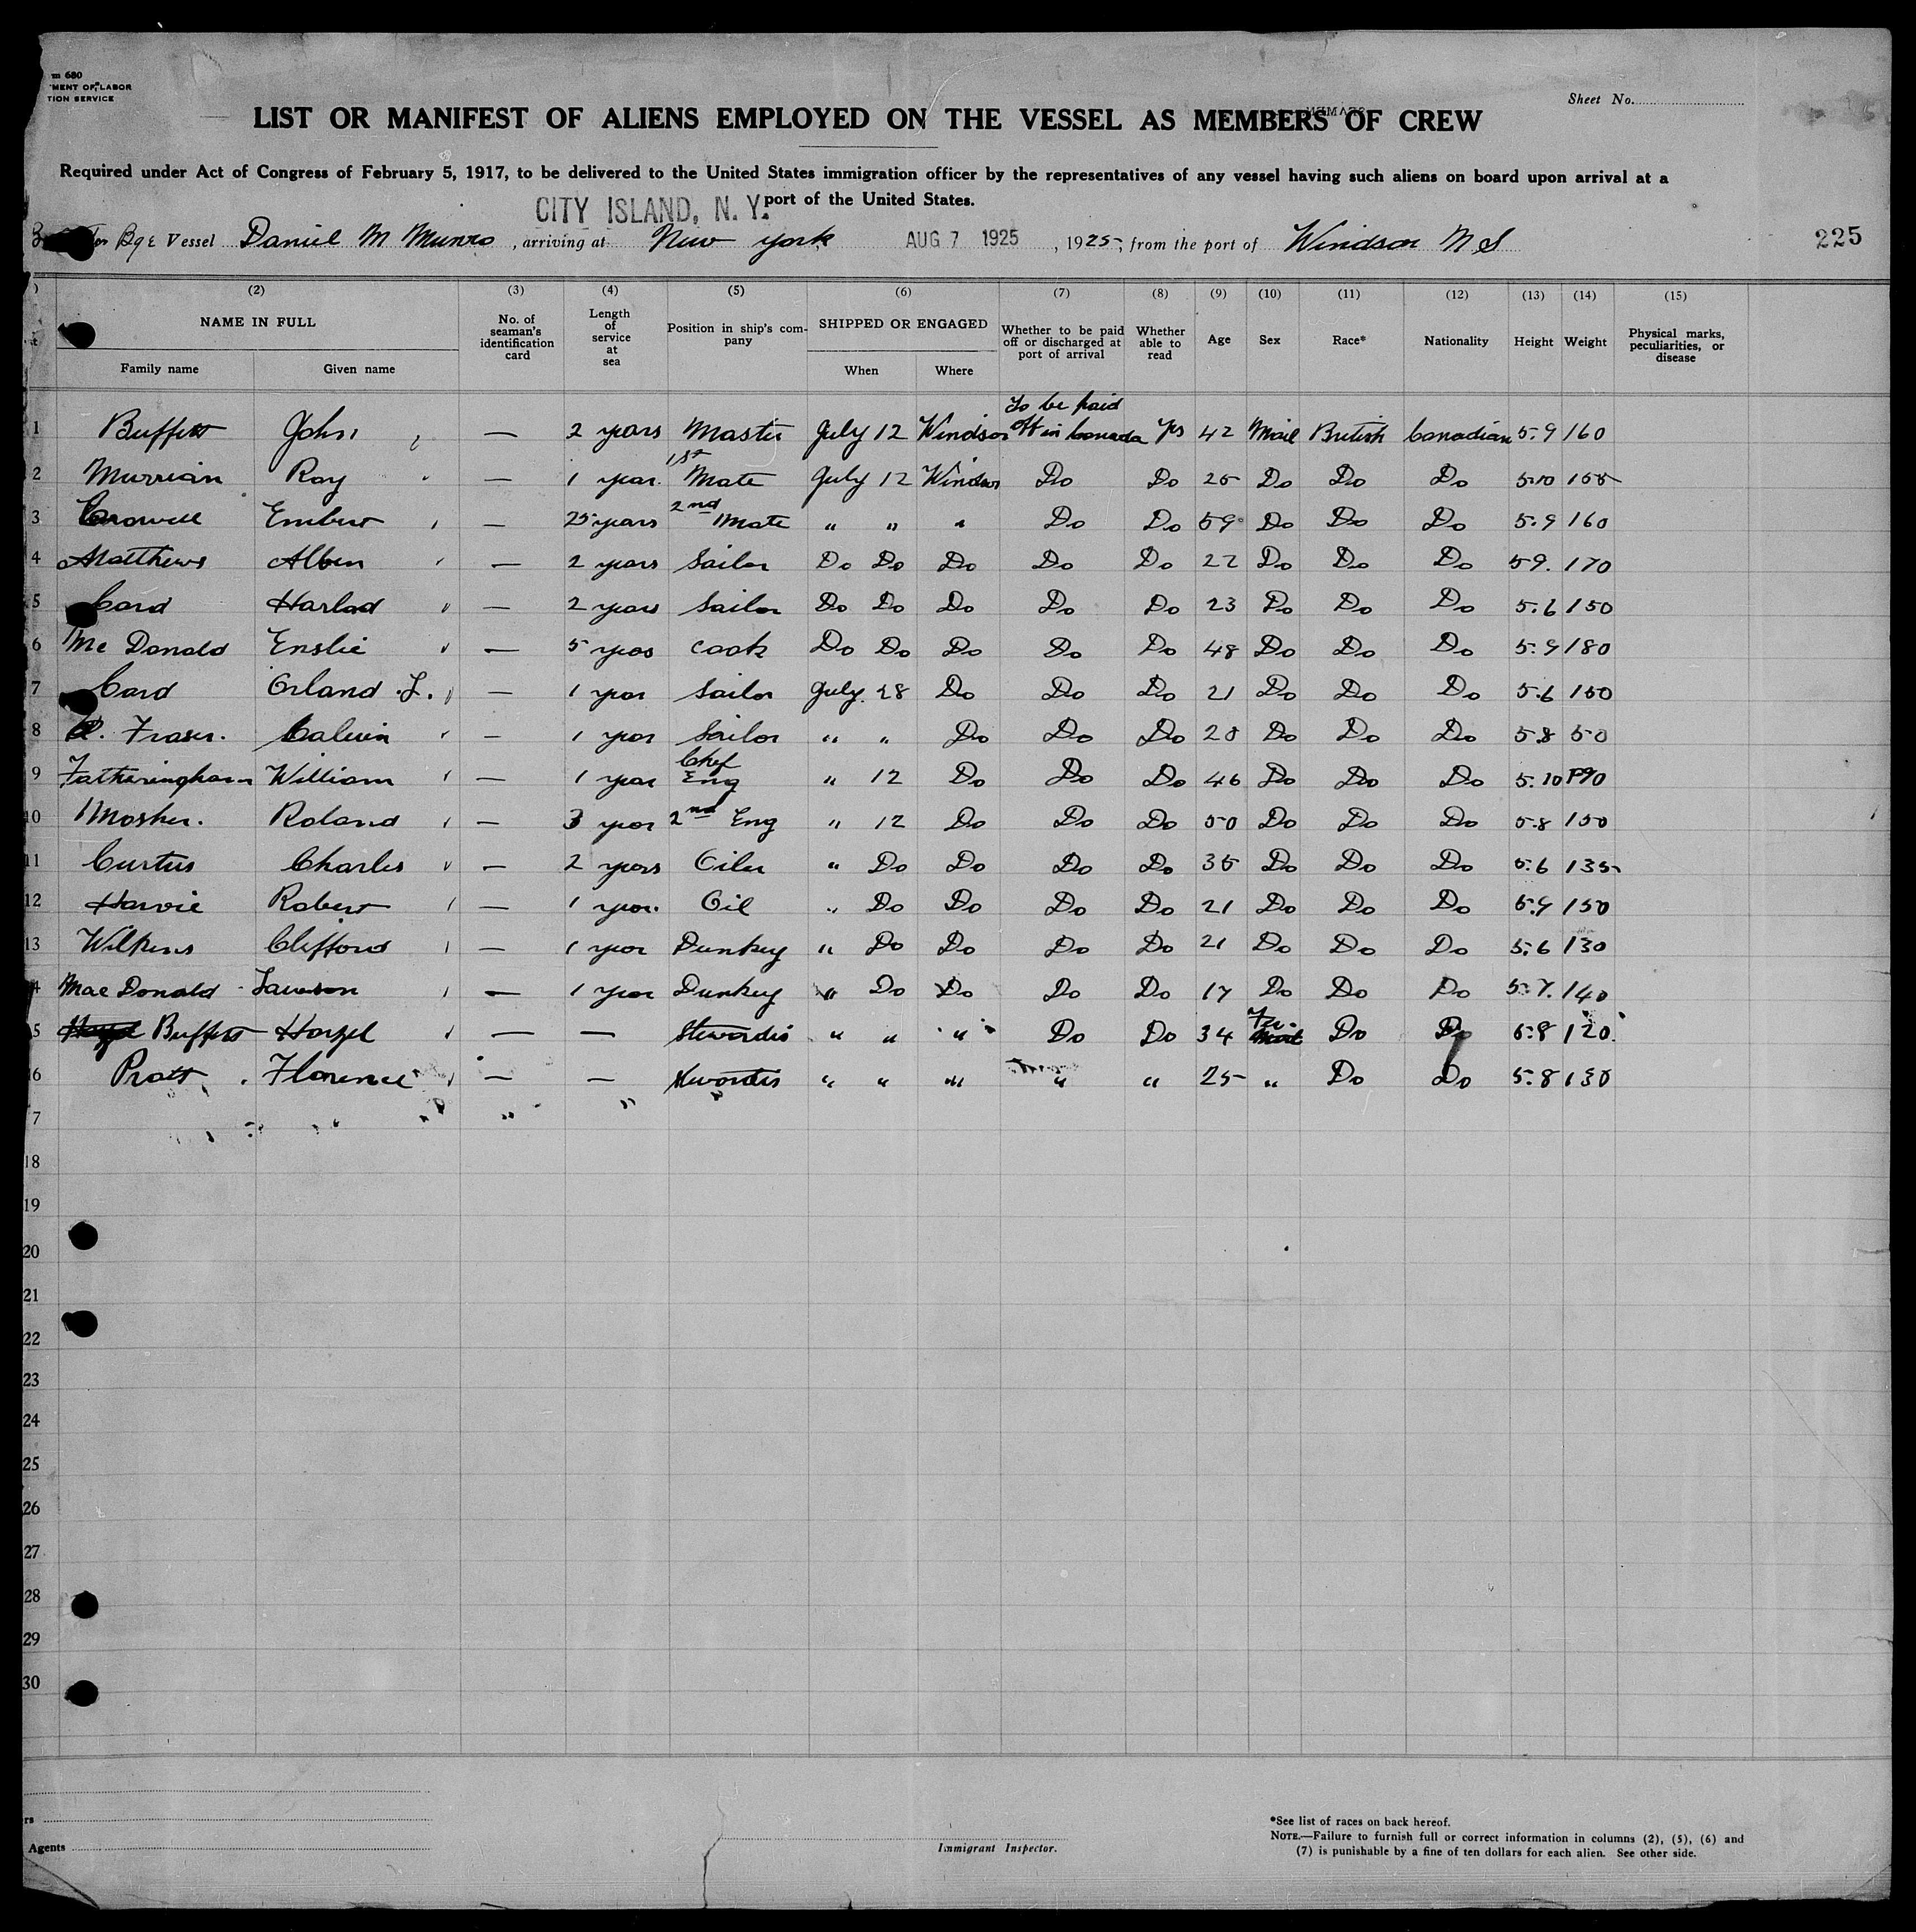 m 680
MENT OF LABOR
TION SERVICE
Sheet No.
LIST OR MANIFEST OF ALIENS EMPLOYED ON THE VESSEL AS MEMBERS OF CREW
Required under Act of Congress of February 5, 1917, to be delivered to the United States immigration officer by the representatives of any vessel having such aliens on board upon arrival at a
port of the United States.
CITY ISLAND, N. Y.
Vessel Daniel M Munro, arriving at New York AUG 7 1925, 1925, from the port of Windsor N S 225
(2) (3) (4) (5) (6) (7) (8) (9) (10) (11) (12) (13) (14) (15)
NAME IN FULL Family name Given name No. of seaman's identification card Length of service at sea Position in ship's company SHIPPED OR ENGAGED When Where Whether to be paid off or discharged at port of arrival Whether able to read Age Sex Race* Nationality Height Weight Physical marks, peculiarities, or disease
1 Buffett John — 2 years Master July 12 Windsor To be paid off in Canada Yes 42 Mail British Canadian 5.9 160
2 Murrian Roy — 1 year 1st Mate July 12 Windsor Do Do 25 Do Do Do 5.10 155
3 Crowell Embert — 25 years 2nd Mate " " " Do Do 59 Do Do Do 5.9 160
4 Matthews Alben — 2 years Sailor Do Do Do Do Do 22 Do Do Do 5 9. 170
5 Card Harlad — 2 years Sailor Do Do Do Do Do 23 Do Do Do 5.6 150
6 Mc Donald Enslie — 5 yeas Cook Do Do Do Do Do 48 Do Do Do 5.9 180
7 Card Orland L. — 1 year Sailor July 28 Do Do Do 21 Do Do Do 5.6 150
8 Fraser. Calvin — 1 year Sailor " " Do Do Do 20 Do Do Do 5.8 50
9 Fatheringham William — 1 year Chef Eng " 12 Do Do Do 46 Do Do Do 5.10 190
10 Mosher. Roland — 3 year 2nd Eng " 12 Do Do Do 50 Do Do Do 5.8 150
11 Curtus Charles — 2 years Oiler " Do Do Do Do 35 Do Do Do 5.6 135
12 Harvie Robert — 1 year. Oil " Do Do Do Do 21 Do Do Do 5.9 150
13 Wilkins Clifford — 1 year Dunkey " Do Do Do Do 21 Do Do Do 5.6 130
4 Mac Donald Lawson — 1 year Dunkey " Do Do Do Do 17 Do Do Do 5.7. 140
5 Buffett Hazel — — Stewardis " " " Do Do 34 Fe- Do Do 5.8 120.
6 Pratt Florence — — Stewardis " " " " " 25 " Do Do 5.8 130
7
18
19
20
21
22
23
24
25
26
27
28
29
30
rs
Agents
Immigrant Inspector.
*See list of races on back hereof.
NOTE.—Failure to furnish full or correct information in columns (2), (5), (6) and
(7) is punishable by a fine of ten dollars for each alien. See other side.